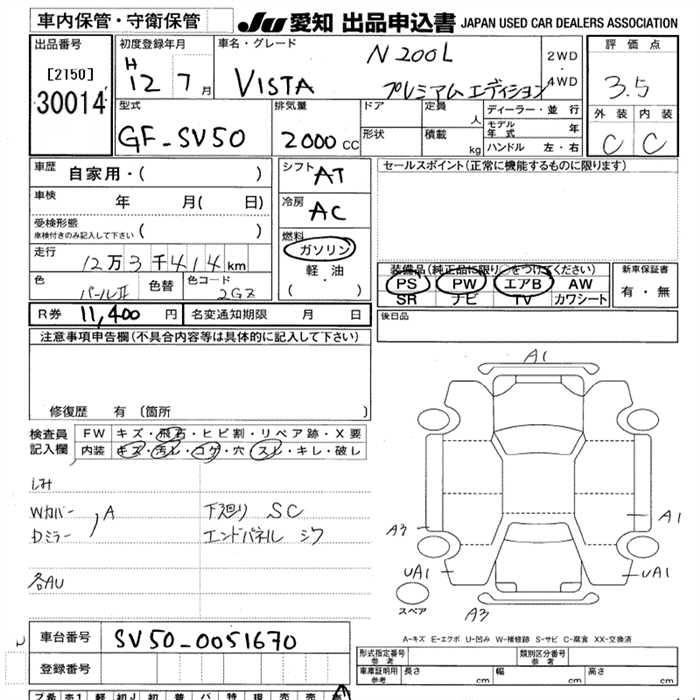 車内保管・守衛保管
JU 愛知 出品申込書 JAPAN USED CAR DEALERS ASSOCIATION
出品番号
[2150]
30014
初度登録年月
H 12 7月
車名・グレード
VISTA
N200L
プレミアムエディション
2WD
・
4WD
評価点
3.5
外装 内装
C C
型式
GF-SV50
排気量
2000 CC
ドア
形状
定員
人
積載
kg
ディーラー・並行
モデル年式 年
ハンドル 左・右
車歴 自家用・( )
車検 年 月( 日)
受検形態
車検付きのみ記入して下さい ( )
走行
12万3千414km
色
パールII
色替
色コード
2GZ
シフト AT
冷房 AC
燃料
ガソリン
・
軽油
・
( )
セールスポイント(正常に機能するものに限ります)
装備品(純正品に限り○をつけてください)
PS PW エアB AW
SR ナビ TV カワシート
新車保証書
有・無
R券 11,400 円
名変通知期限 月 日
後日品
注意事項申告欄(不具合内容等は具体的に記入して下さい)
修復歴 有(箇所 )
検査員
記入欄
FW キズ・飛石・ヒビ割・リペア跡・X要
内装 キズ・汚レ・コゲ・穴・スレ・キレ・破レ
しみ
Wカバー
Dミラー
, A
下廻り SC
エンドパネル シワ
各AU
A1
A3
A1
UA1
UA1
A3
スペア
A-キズ E-エクボ U-凹み W-補修跡 S-サビ C-腐食 XX-交換済
車台番号 SV50-0051670
登録番号
形式指定番号
参考
類別区分番号
参考
車庫証明用
参考
長さ cm
幅 cm
高さ cm